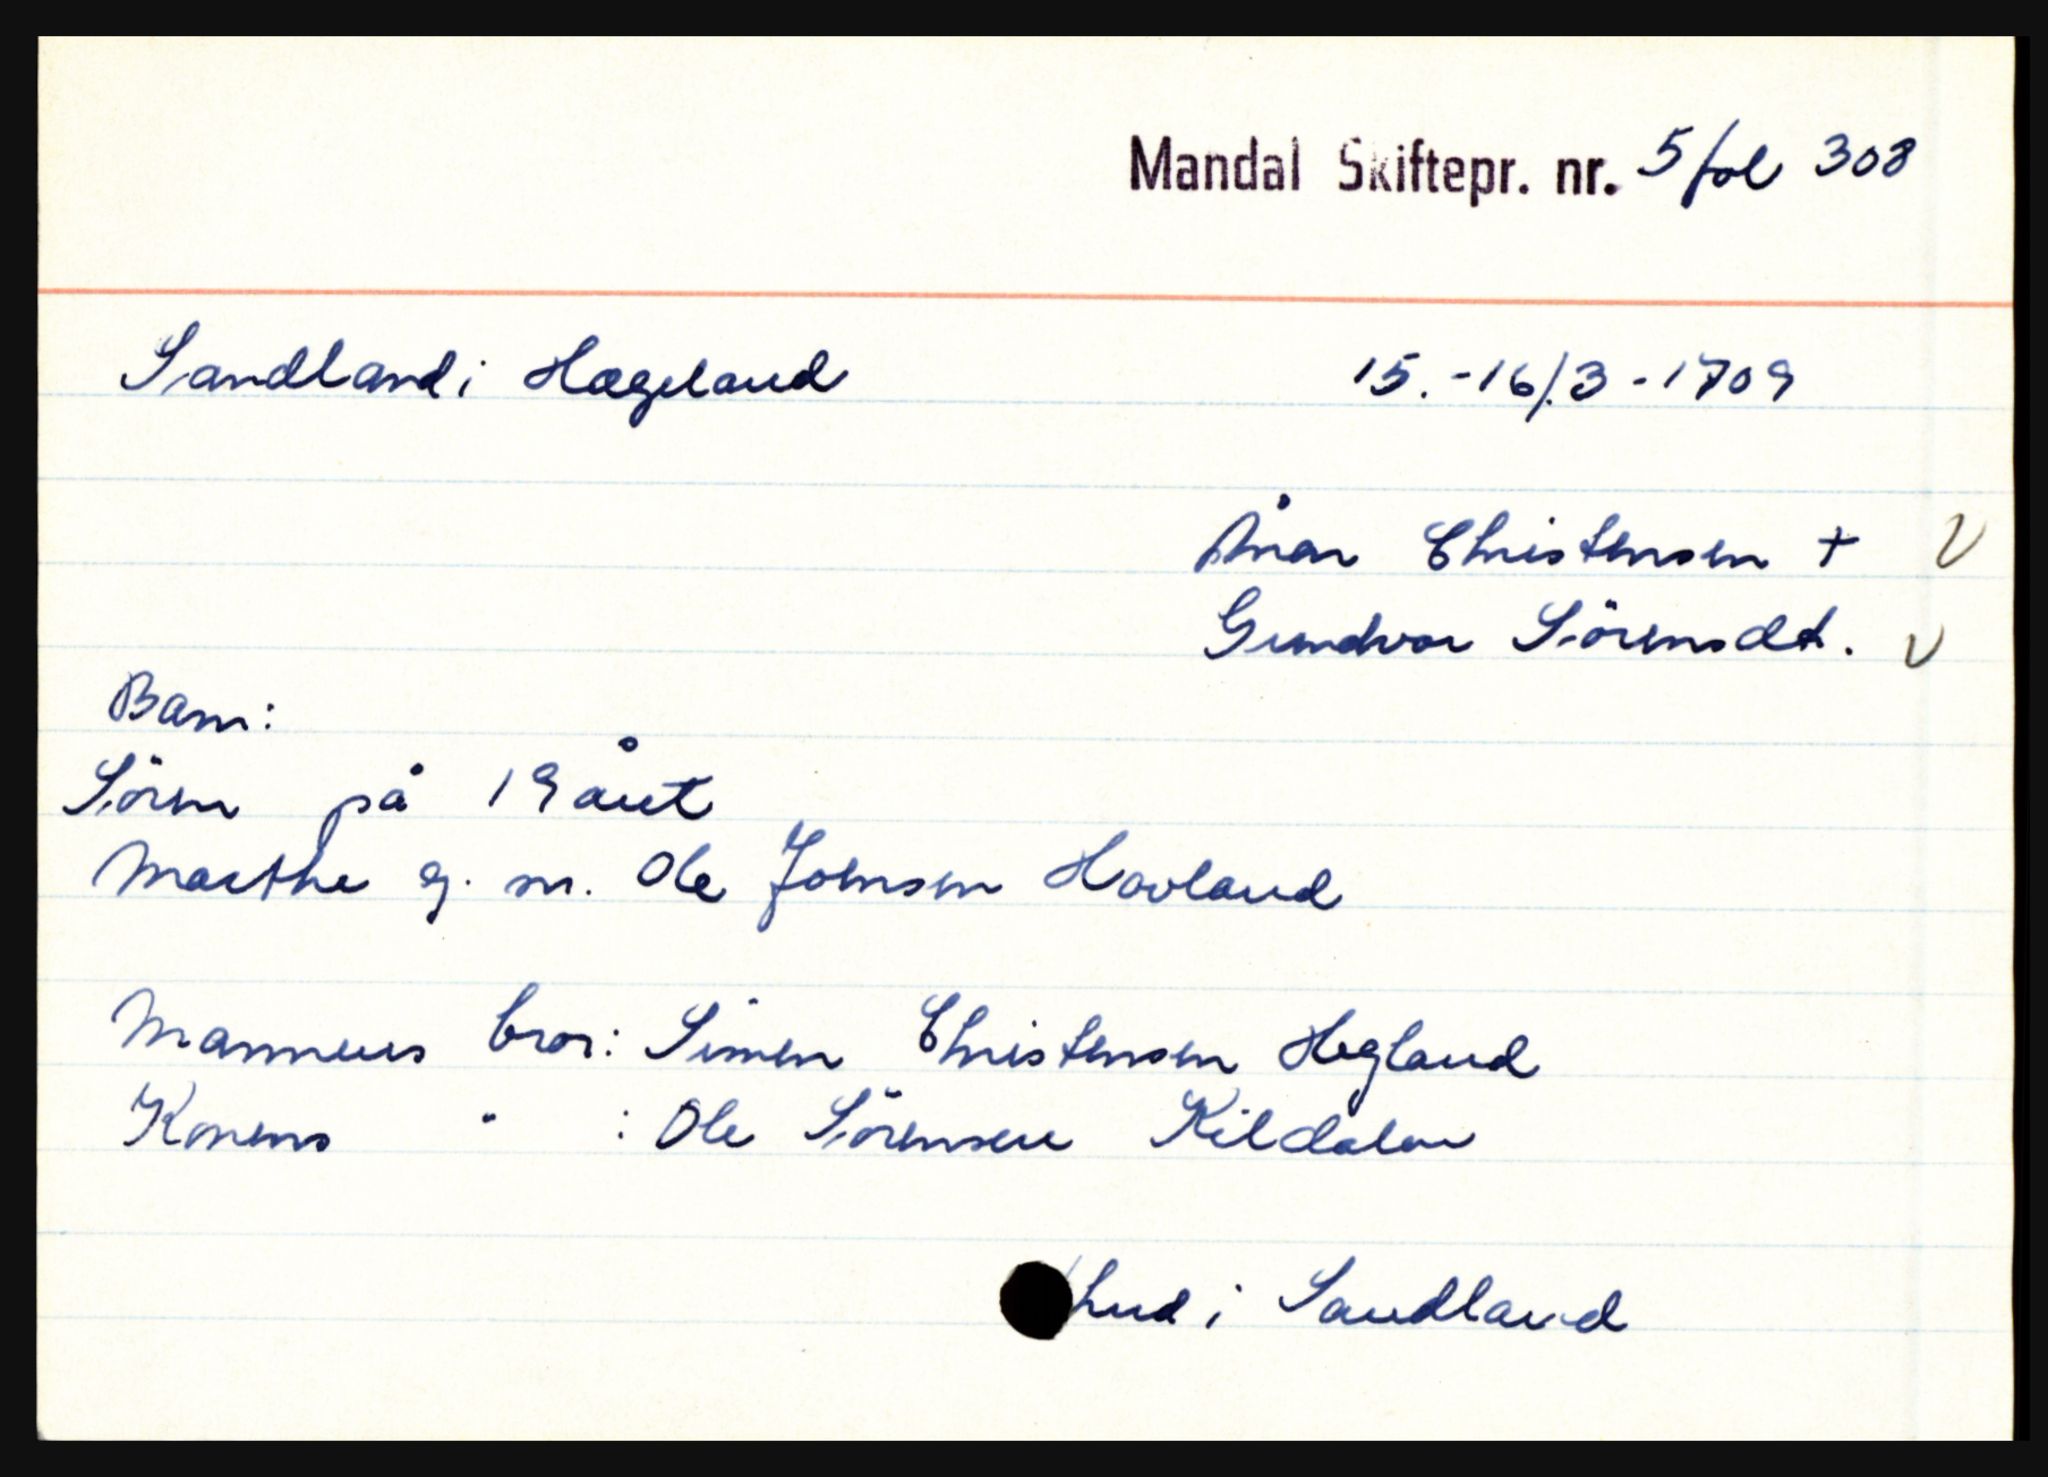 Mandal Skiftepr. nr. 5 fol 308
Sandland i Hægeland 15.-16/.3-1709
Ånen Christensen +
Gundvor Sörensdt.
Barn:
Sören på 19 året
Marthe g. m. Ole Joensen Hovland
Mannens bror: Simen Christensen Hegland
Konens " : Ole Sörensen Kildalen
hud i Sandland